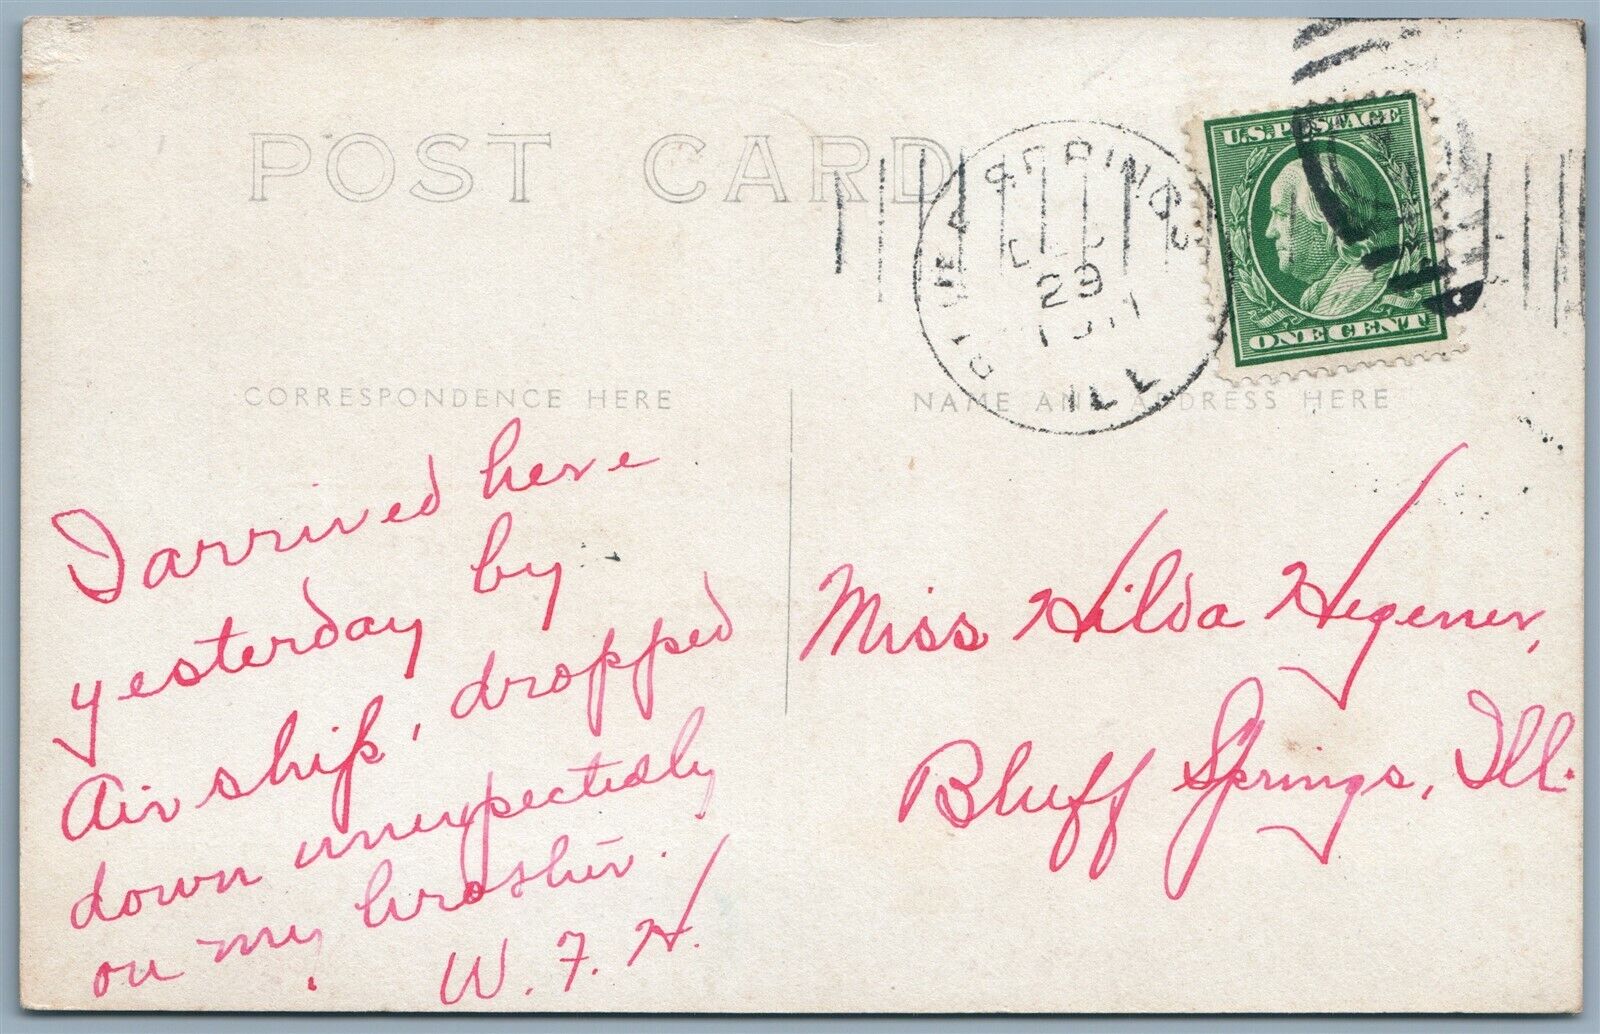 POST CARD
SPRINGS
DEC
29
ILL
U.S. POSTAGE
ONE CENT
CORRESPONDENCE HERE
NAME AND ADDRESS HERE
I arrived here
yesterday by
Air ship, dropped
down unexpectedly
on my brother.
W. F. H.
Miss Hilda Hegener,
Bluff Springs, Ill.